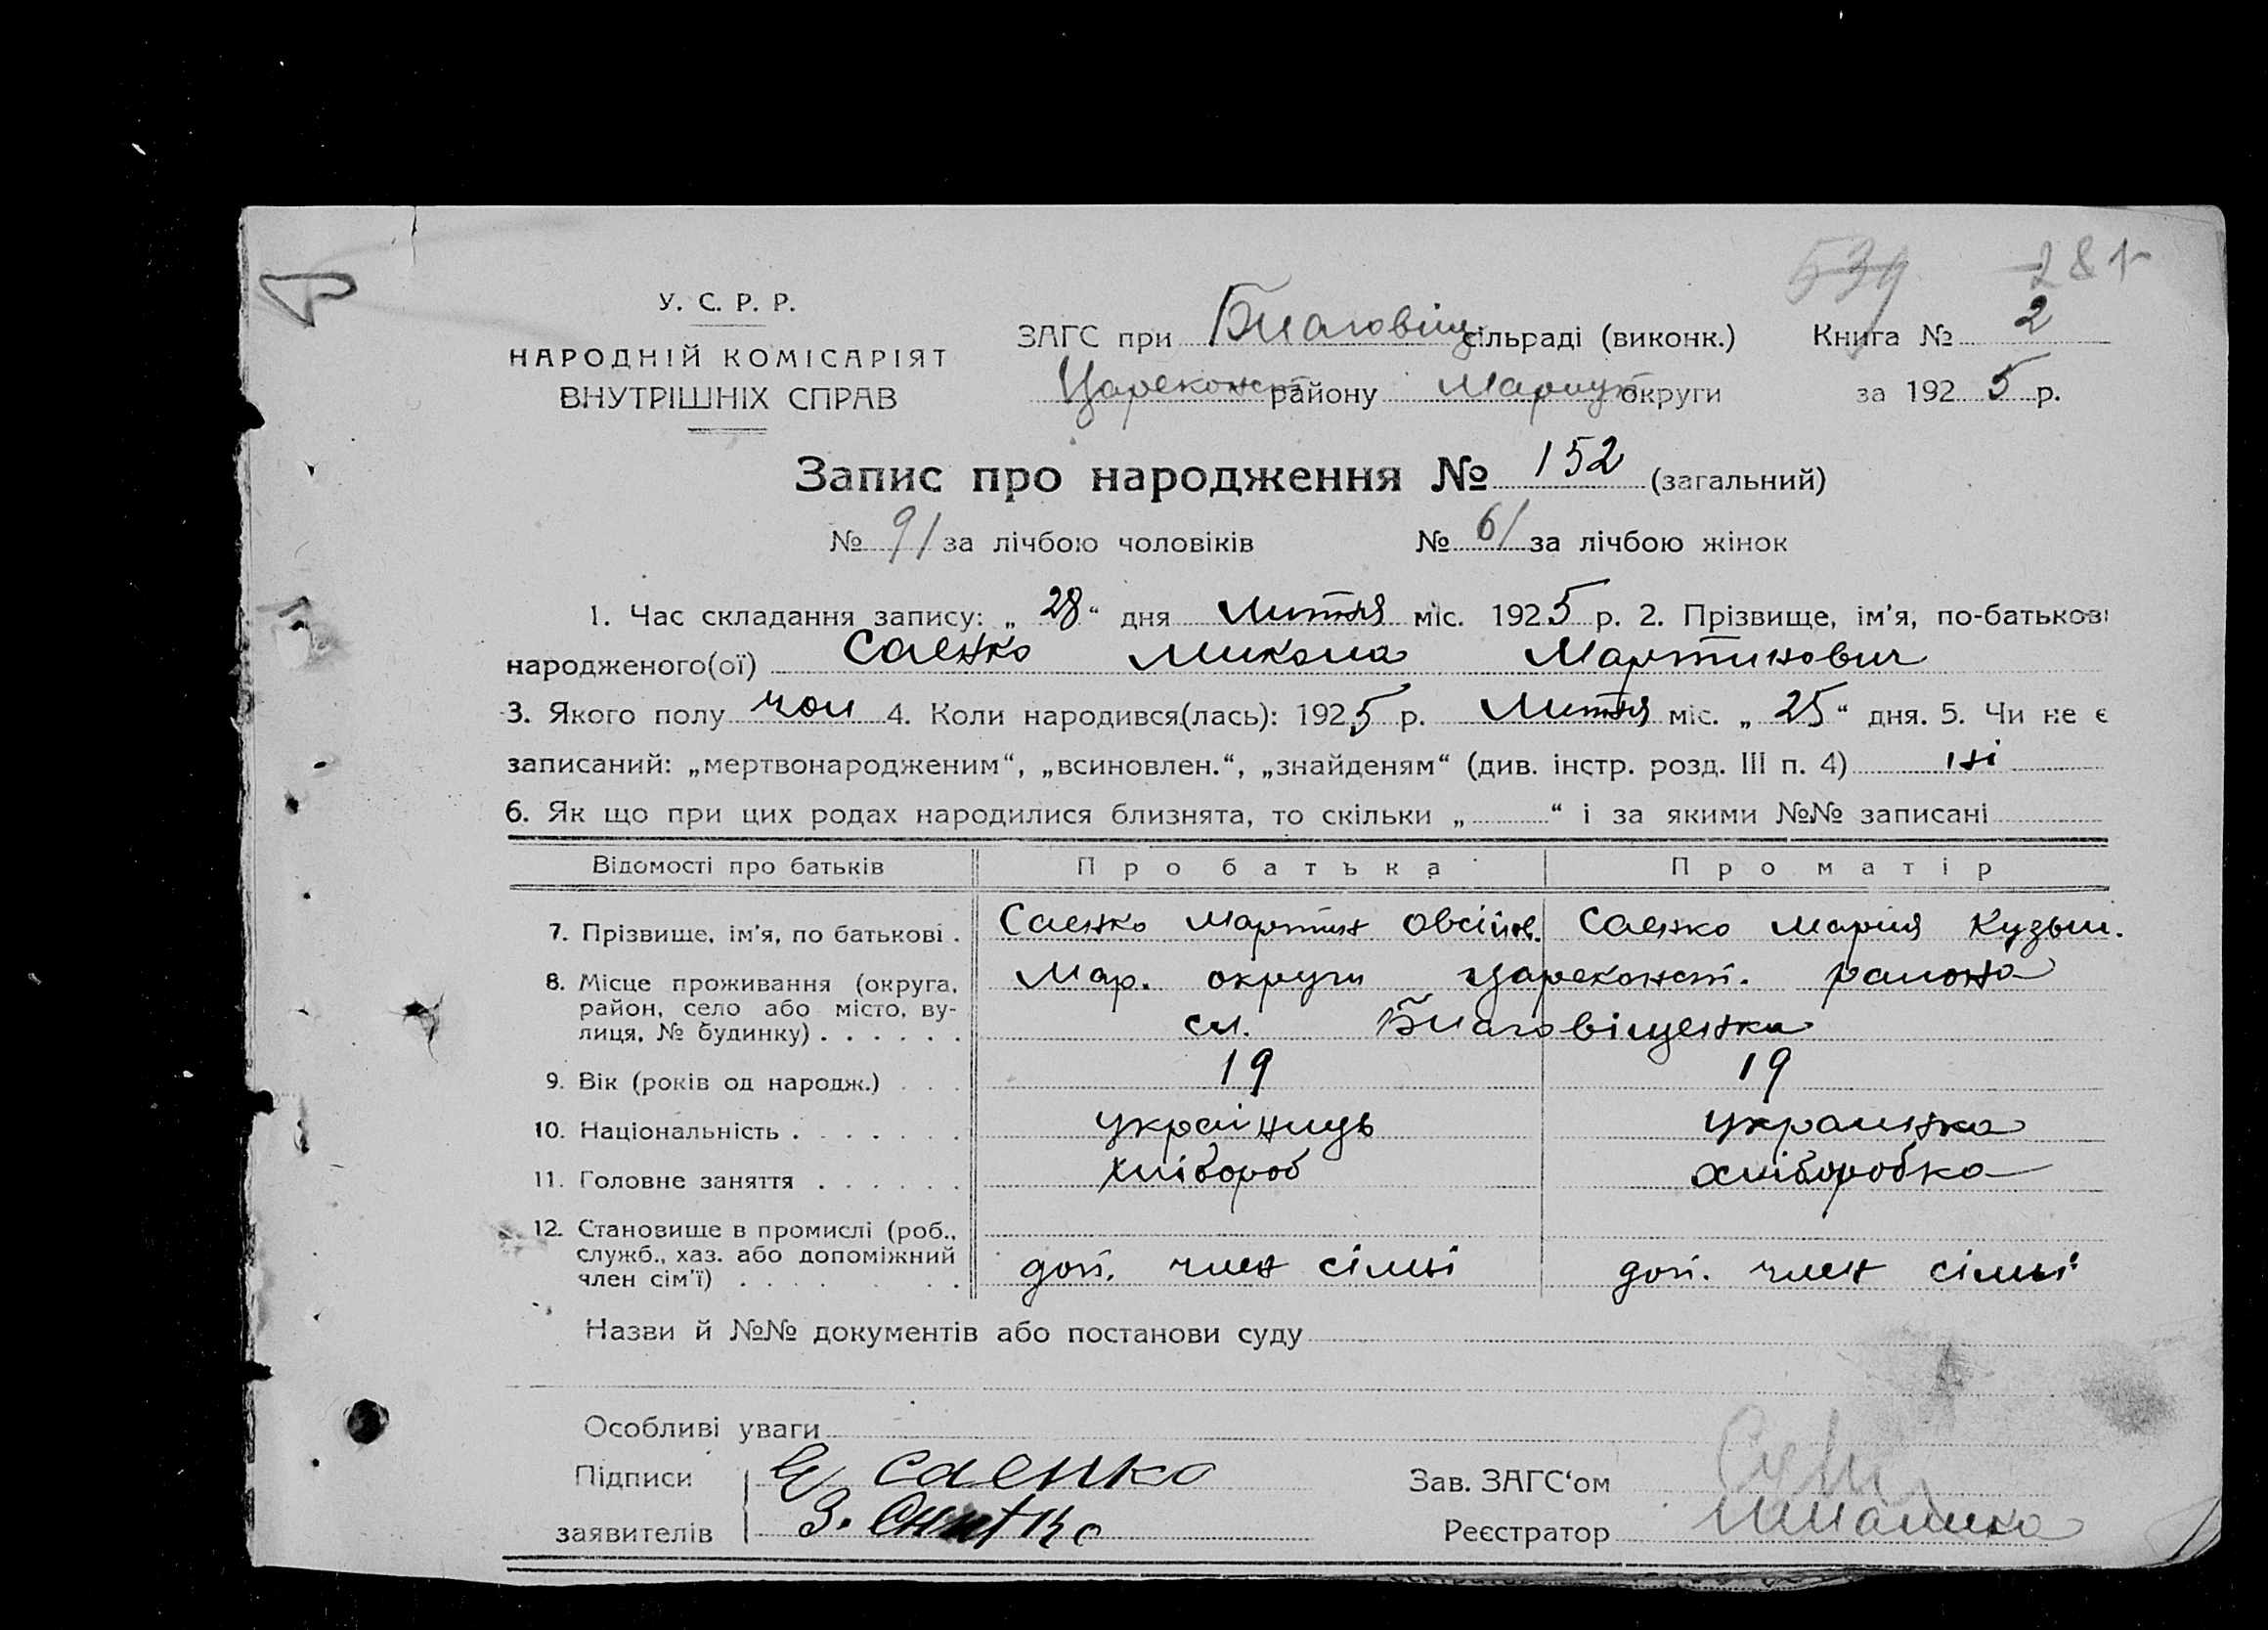 539 281
У. С. Р. Р.
НАРОДНІЙ КОМІСАРІЯТ
ВНУТРІШНІХ СПРАВ
ЗАГС при Благовіщ сільраді (виконк.) Книга № 2
Цареконст району Маріуп округи за 1925 р.
Запис про народження № 152 (загальний)
№ 91 за лічбою чоловіків № 61 за лічбою жінок
1. Час складання запису: „28“ дня литня міс. 1925 р. 2. Прізвище, ім'я, по-батькові
народженого(ої) Саенко Микола Мартинович
3. Якого полу чол 4. Коли народився(лась): 1925 р. литня міс. „25“ дня. 5. Чи не є
записаний: „мертвонародженим“, „всиновлен.“, „знайденям“ (див. інстр. розд. III п. 4) ні
6. Як що при цих родах народилися близнята, то скільки „ “ і за якими №№ записані
Відомості про батьків Про батька Про матір
7. Прізвище, ім'я, по батькові . Саенко Мартин Овсійов. Саенко Мария Кузьм.
8. Місце проживання (округа, район, село або місто, вулиця, № будинку) . . . . . .
Мар. округи Цареконст. раиона
сл. Благовіщенка
9. Вік (років од народж.) . . . 19 19
10. Національність . . . . . . . українць украинка
11. Головне заняття . . . . . . хлібороб хліборобка
12. Становище в промислі (роб., служб., хаз. або допоміжний член сім'ї) . . . . . . .
доп. член сімьі доп. член сімьі
Назви й №№ документів або постанови суду
Особливі уваги
Підписи Саенко Зав. ЗАГС‘ом
заявителів З. Реєстратор